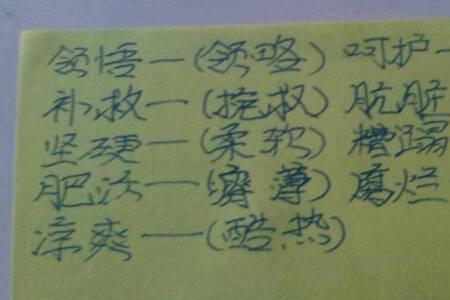 领悟—(领略) 呵护—
补救—(挽救) 肮脏
坚硬—(柔软) 糟蹋
肥沃—(瘠薄) 腐烂
凉爽—(酷热)